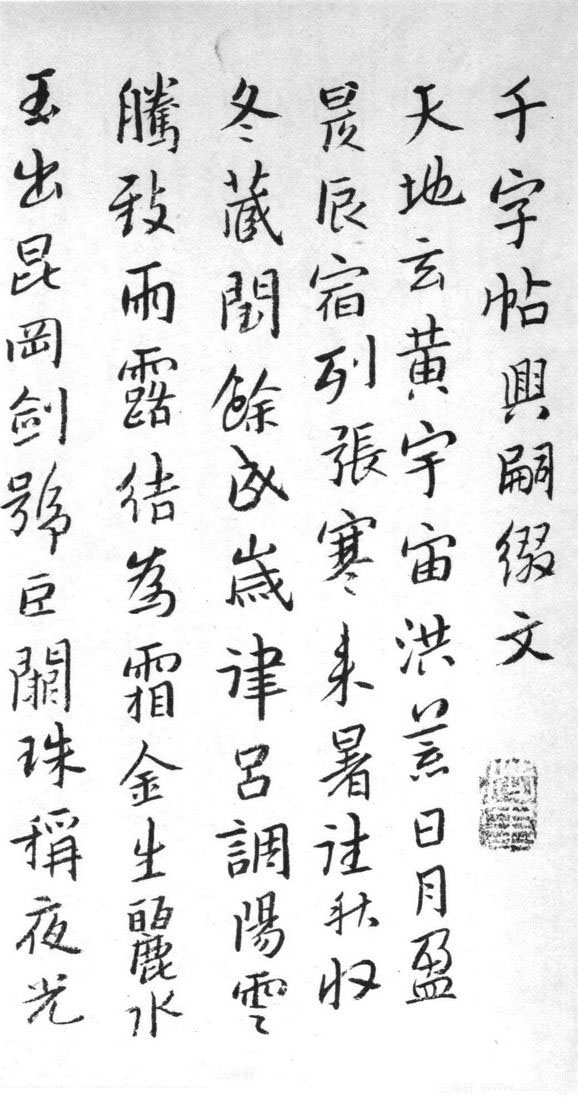 千字帖興嗣綴文
天地玄黄宇宙洪荒日月盈
昃辰宿列張寒来暑往秋收
冬藏閏餘成歳律呂調陽雲
騰致雨露結為霜金生麗水
玉出昆岡劍號巨闕珠稱夜光